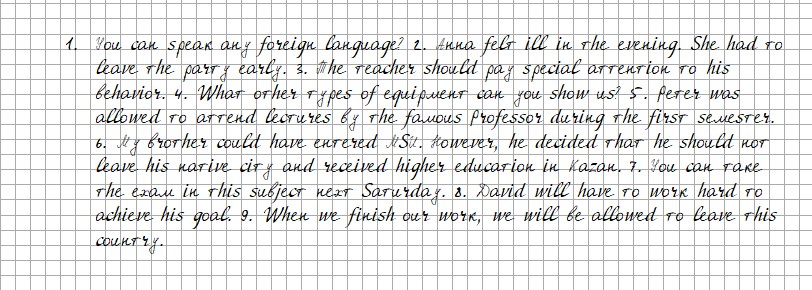 1. You can speak any foreign language? 2. Anna felt ill in the evening. She had to
leave the party early. 3. The teacher should pay special attention to his
behavior. 4. What other types of equipment can you show us? 5. Peter was
allowed to attend lectures by the famous Professor during the first semester.
6. My brother could have entered MSU. However, he decided that he should not
leave his native city and received higher education in Kazan. 7. You can take
the exam in this subject next Saturday. 8. David will have to work hard to
achieve his goal. 9. When we finish our work, we will be allowed to leave this
country.